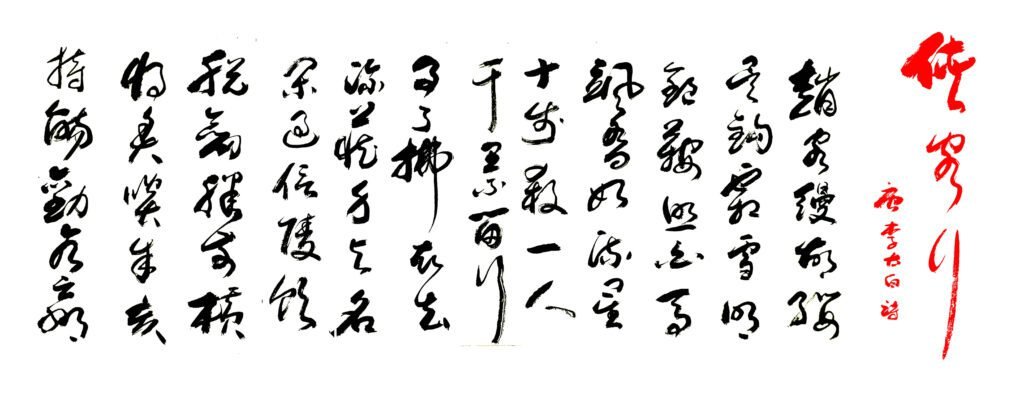 俠客行
唐李太白詩
趙客縵胡纓
吳鉤霜雪明
銀鞍照白馬
颯沓如流星
十步殺一人
千里不留行
事了拂衣去
深藏身与名
閑過信陵飲
脫劍膝前橫
將炙啖朱亥
持觴勸侯嬴